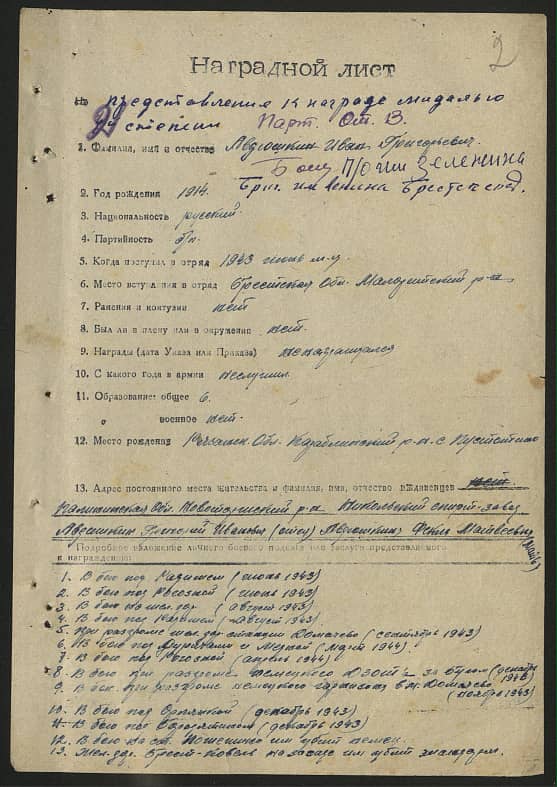 2
Наградной лист
На представления к награде медалью
2й степени Парт. От. В.
1. Фамилия, имя и отчество Авдюшкин Иван Григорьевич.
Боец П/О им Зеленина
Бриг. им Ленина Брестск соед.
2. Год рождения 1914.
3. Национальность русский.
4. Партийность б/п.
5. Когда поступил в отряд 1943 июнь м-ц
6. Место вступления в отряд Брестская Обл. Малоритский р-н
7. Ранения и контузии нет
8. Был ли в плену или в окружении нет.
9. Награды (дата Указа или Приказа) не награждался
10. С какого года в армии не служил.
11. Образование: общее 6.
военное нет.
12. Место рождения Обл. р-н. с
13. Адрес постоянного места жительства и фамилия, имя, отчество иждивенцев нет
Калининская Обл. Новоторжский р-н Никольский завод
Авдюшкин Григорий Иванович (отец) Авдюшкина Фекла Матвеевна (мать)
Подробное изложение личного боевого подвига или заслуги представляемого
к награждению:
1. В бою под (июнь 1943)
2. В бою под (июнь 1943)
3. В бою на жел. дор. (август 1943)
4. В бою под (август 1943)
5. При разгроме жел. дор станции Домачево (сентябрь 1943)
6. В бою под и (март 1944)
7. В бою под (апрель 1944)
8. В бою при разгроме немецкого Дзота за Бугом (декабрь 1943)
9. В бою при разгроме немецкого гарнизона в м. Домачево (ноябрь 1943)
10. В бою под (декабрь 1943)
11. В бою под (декабрь 1943)
12. В бою на ст. им убит немец.
13. Жел. дор. Брест-Ковель на засаде им убит